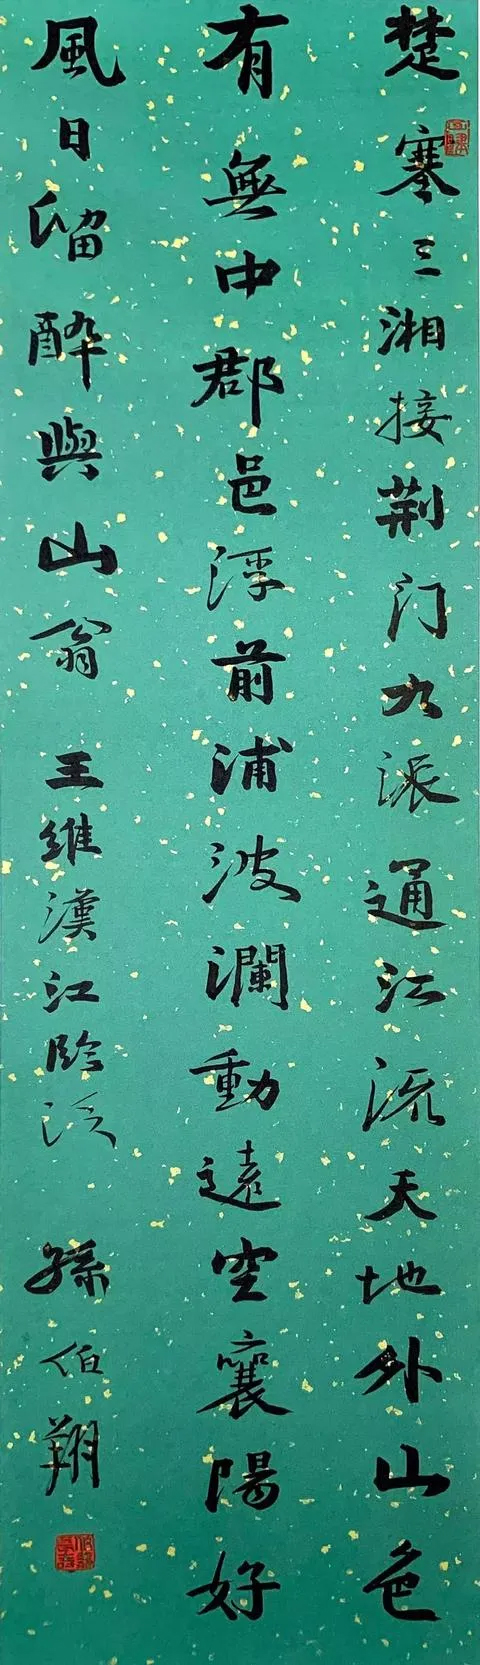 楚塞三湘接荆门九派通江流天地外山色
有無中郡邑浮前浦波瀾動遠空襄陽好
風日留醉與山翁 王維漢江臨泛 孫伯翔